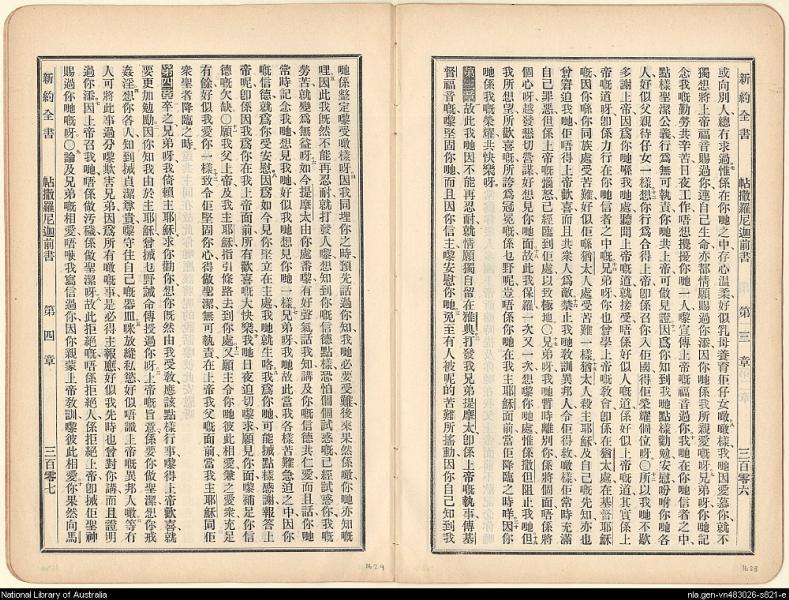 新約全書 帖撒羅尼迦前書 第三章 三百零六
或向別人總有求過惟係在你哋之中存心溫柔好似乳母養育佢仔女噉噉樣我哋因愛慕你就不
獨想將上帝福音賜過你連自己生命亦都情願賜過你添因你哋係我所親愛嘅呀兄弟呀你哋記
念我嘅勤勞共辛苦日夜工作唔想攪擾你哋一人嚟宣傳上帝嘅福音過你我哋在你哋信者之中
點樣聖潔公義行為無可執責你共上帝可做見證因為你知到我哋點樣勸勉安慰吩咐你哋各
人好似父親待仔女一樣想你行為合得上帝即係召你入佢國得佢榮耀個位呀〇所以我哋不歇
多謝上帝因為你哋喺我哋處聽聞上帝嘅道就接受唔係好似人嘅道係好似上帝嘅道其實係上
帝嘅道呀即係力行在你哋信者之中嘅兄弟呀你亦曾學上帝嘅教會即係在猶太處在基督耶穌
嘅因你哋係你同族處受苦難好似佢哋喺猶太人處受苦難一樣猶太人殺主耶穌及自己嘅先知亦也
曾窘迫我哋佢唔得上帝歡喜而且共衆人為敵禁止我哋教訓異邦人令佢得救噉樣佢常時充滿
自己罪惡但係上帝嘅惱怒已經臨到佢處以致極地〇兄弟呀我哋暫時離別你係將個面唔係將
個心呀越發懇切嘗謀好想見你哋面故此我保羅一次又一次想嚟你哋處惟係撒但阻止我哋但
我所想望所歡喜嘅所誇為冠冕嘅係乜野呢豈唔係你哋在我主耶穌面前當佢降臨之時咩因你
哋係我嘅榮耀共快樂呀
第三章 故此我哋因不能再忍耐就情願獨自留在雅典打發我兄弟提摩太即係上帝嘅執事傳基
督福音嘅嚟堅固你哋而且因你信主嚟安慰你哋免至有人被呢的苦難所搖動因你自己知到我
新約全書 帖撒羅尼迦前書 第四章 三百零七
哋係整定嚟受噉樣呀因我同埋你之時預先話過你知我哋必要受難後來果然係噉你哋亦知嘅
哩因此我既然不能再忍耐就打發人嚟想知到你嘅信德點樣恐怕個個試惑嘅已經試惑你我嘅
勞苦就變為無益呀如今提摩太由你處番嚟有好聲氣話我知講及你嘅信德共仁愛而且話你哋
常時記念我哋想見我哋好似我哋想見你哋一樣兄弟呀我哋故此當我各樣苦難急迫之中因你
嘅信德就為你受安慰因為如今見你堅立在主處我哋就生咯我為你哋可能械點樣感謝報答上
帝呢即係因我為你在我上帝面前所有歡喜嘅大快樂我哋日夜迫切嚟求願見你面嚟補足你信
德嘅欠缺〇願我父上帝及我主耶穌指引條路去到你處又願主令你哋彼此相愛兼之愛衆充足
有餘好似我愛你一樣致令佢堅固你心得做聖潔無可執責在上帝我父嘅面前當我主耶穌同佢
衆聖者降臨之時
第四章 卒之兄弟呀我倚賴主耶穌求你勸你想你既然由我受教應該點樣行事嚟得上帝歡喜就
要更加勉勵因你知我由於主耶穌曾械乜野誡命傳授過你呀上帝嘅旨意係要你做聖潔想你戒
姦淫想你各人知到械貞潔尊貴嚟守住自己嘅器皿咪放縱私慾好似唔識上帝嘅異邦人噉等有
人可將此事過分嚟欺害兄弟因為所有噉嘅事是必得主報應好似我先時也曾對你講而且證明
過你添因上帝召我哋唔係做汚穢係做聖潔呀故此拒絕嘅唔係拒絕人係拒絕上帝即械佢聖神
賜過你哋嘅呀〇論及兄弟嘅相愛唔駛我寫信過你因你親蒙上帝教訓嚟彼此相愛你果然向馬
1628
1629
National Library of Australia
nla.gen-vn483026-s821-e